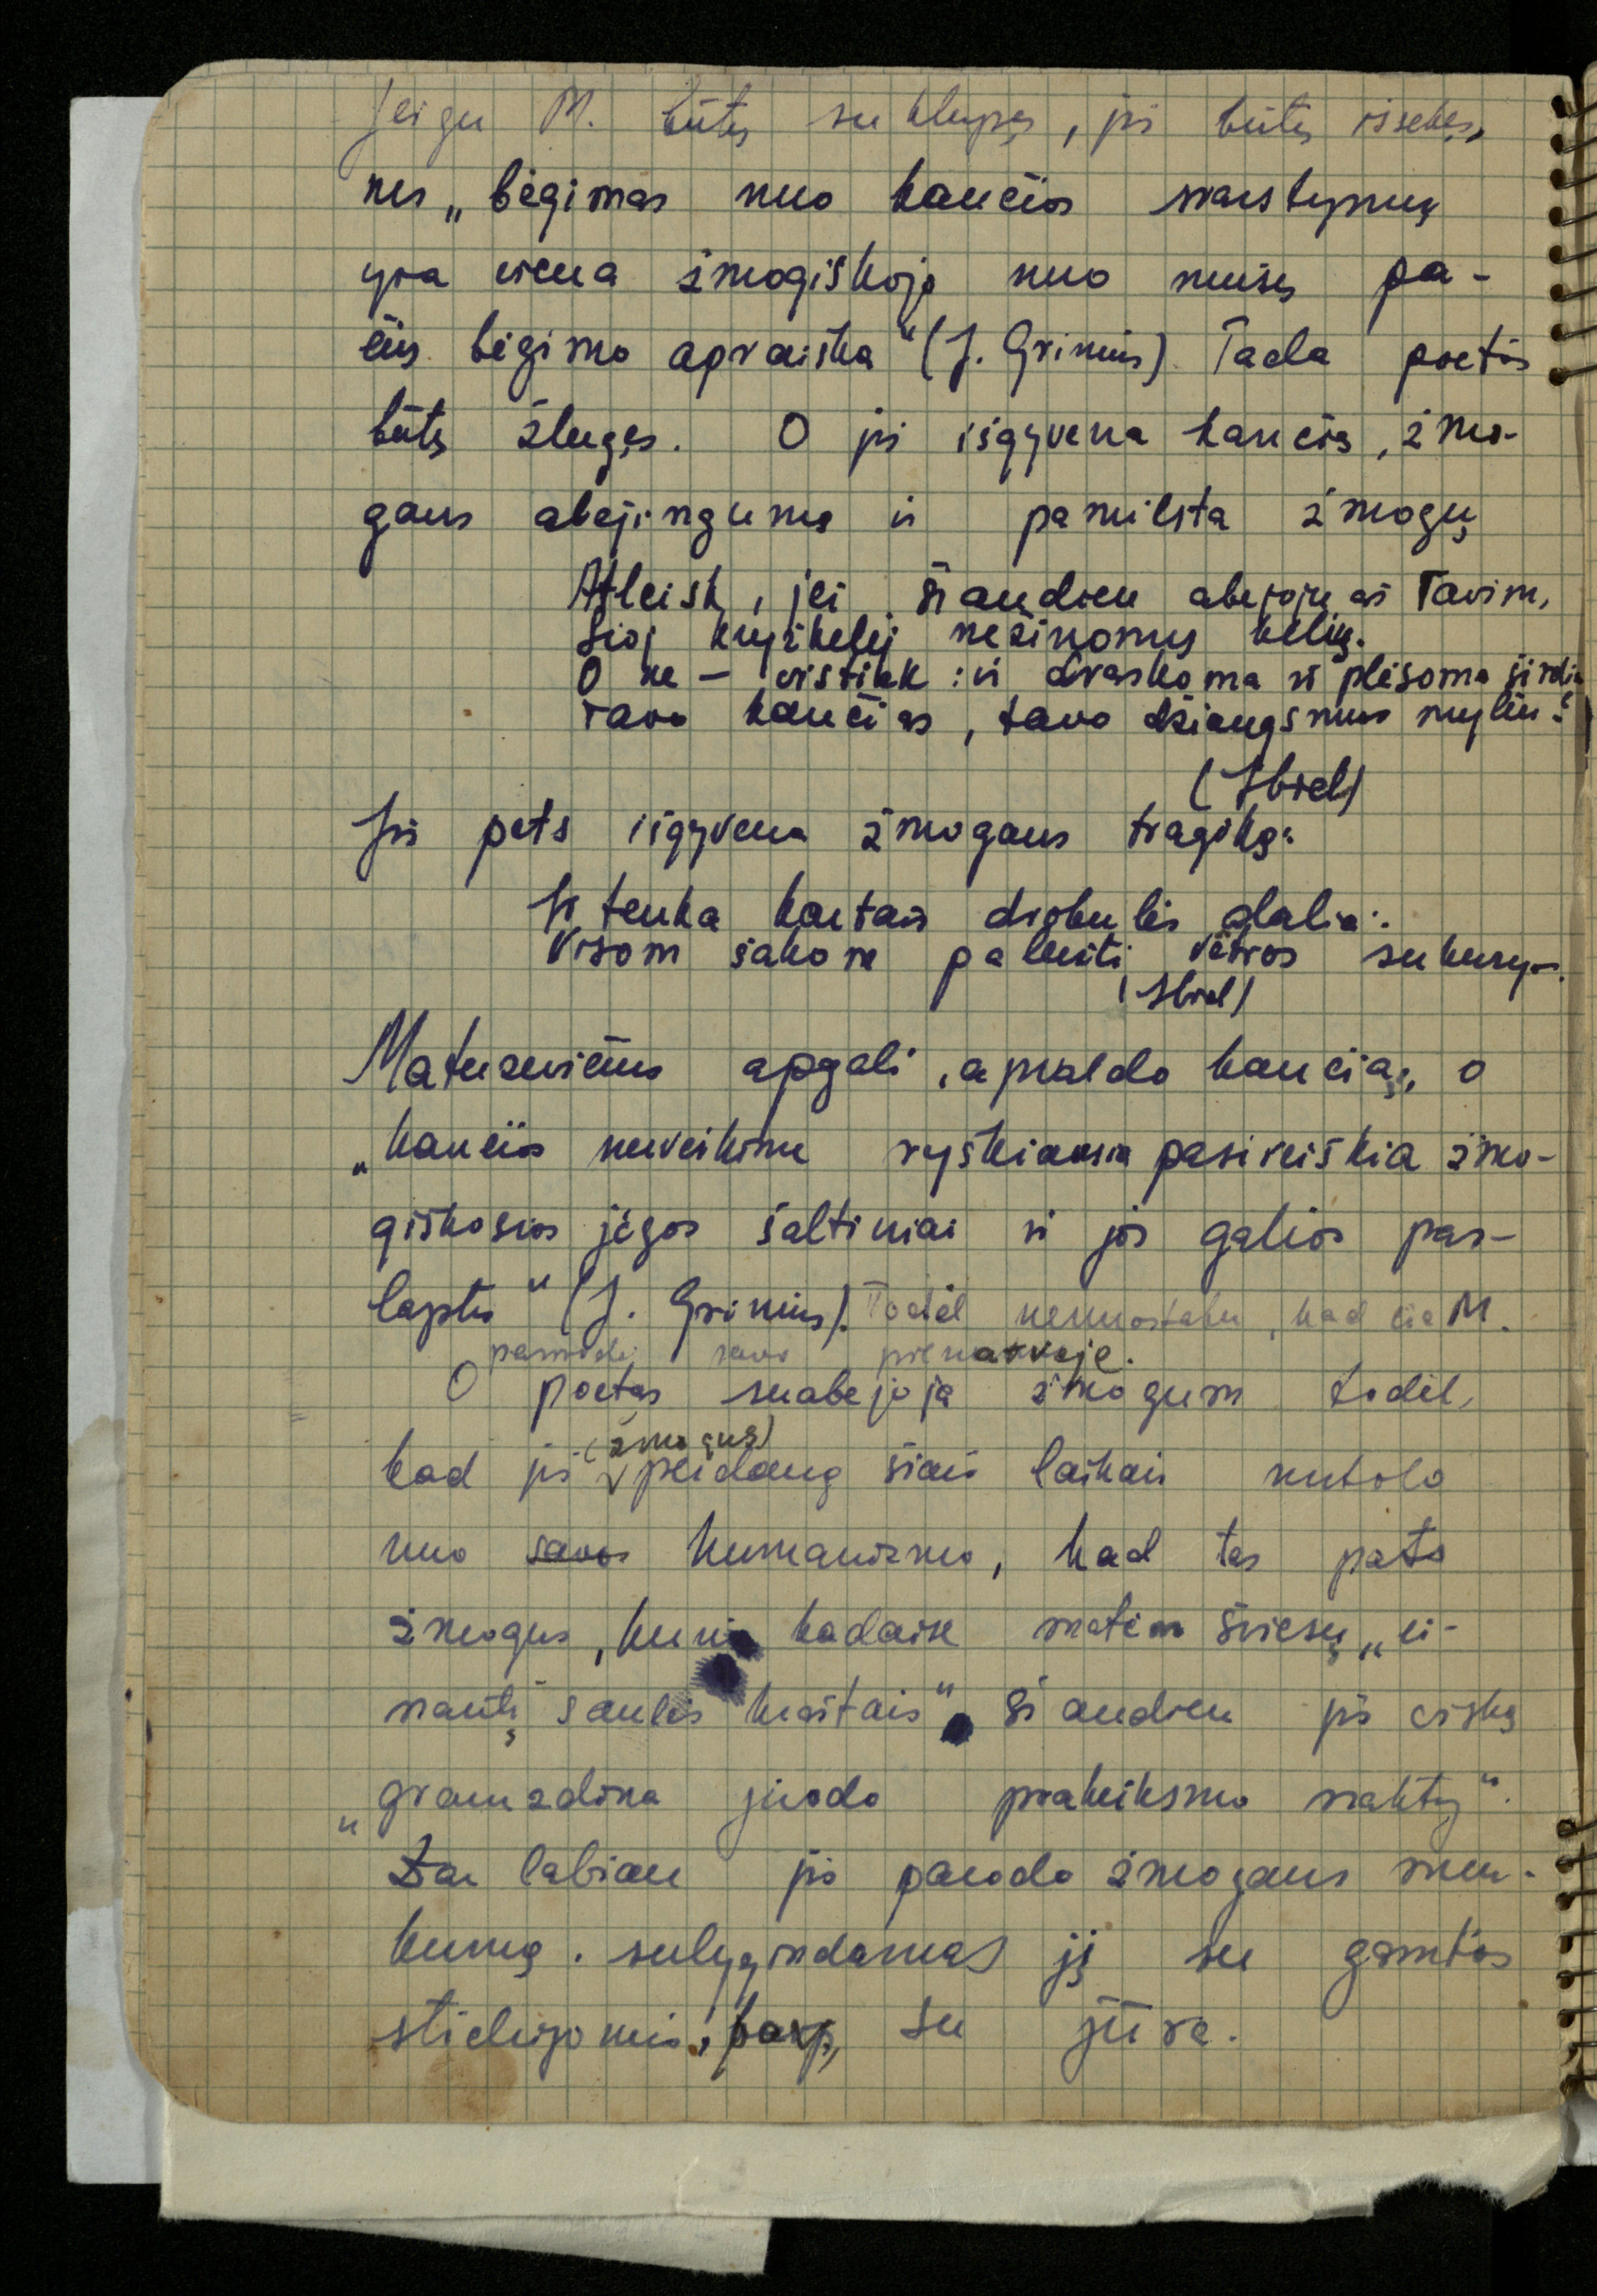 Jeigu M. būtų suklupęs, jis būtų išsekęs,
nes „bėgimas nuo kančios svarstymų
yra viena žmogiškojo nuo mūsų pa-
čių bėgimo apraiška“ (J. Grinius). Tada poetas
būtų žlugęs. O jis išgyvena kančią, žmo-
gaus abejingumą ir pamilsta žmogų
Atleisk, jei šiandien abejoju aš Tavim,
Šioj kryžkelėj nežinomų kelių.
O ne – vistiek: ir draskoma ir plėšoma širdim
Tavo kančias, tavo džiaugsmus myliu!
(Ibid)
Jis pats išgyvena žmogaus tragiką:
Ir tenka kartais drebulės dalia:
Visom šakom palinkti vėtros sukury.
(Ibid)
Matuzevičius apgali, apvaldo kančią, o
„kančios nuveikime ryškiausia pasireiškia žmo-
giškosios jėgos šaltiniai ir jos galios pas-
laptis“ (J. Grinius). Todėl nenuostabu, kad čia M.
savo pirmavoje.
O poetas suabejoja žmogum todėl,
kad jis (žmogus) perdaug šiais laikais nutolo
nuo savo humanizmo, kad tas pats
žmogus, kurį kadaise matėm šviesų, „ei-
nantį saulės kraštais“, šiandien jis viską
„gramzdina juodo prakeiksmo naktų“.
Dar labiau jis parodo žmogaus men-
kumą, sulygindamas jį su gamtos
stichijomis, pavyz, su jūra.